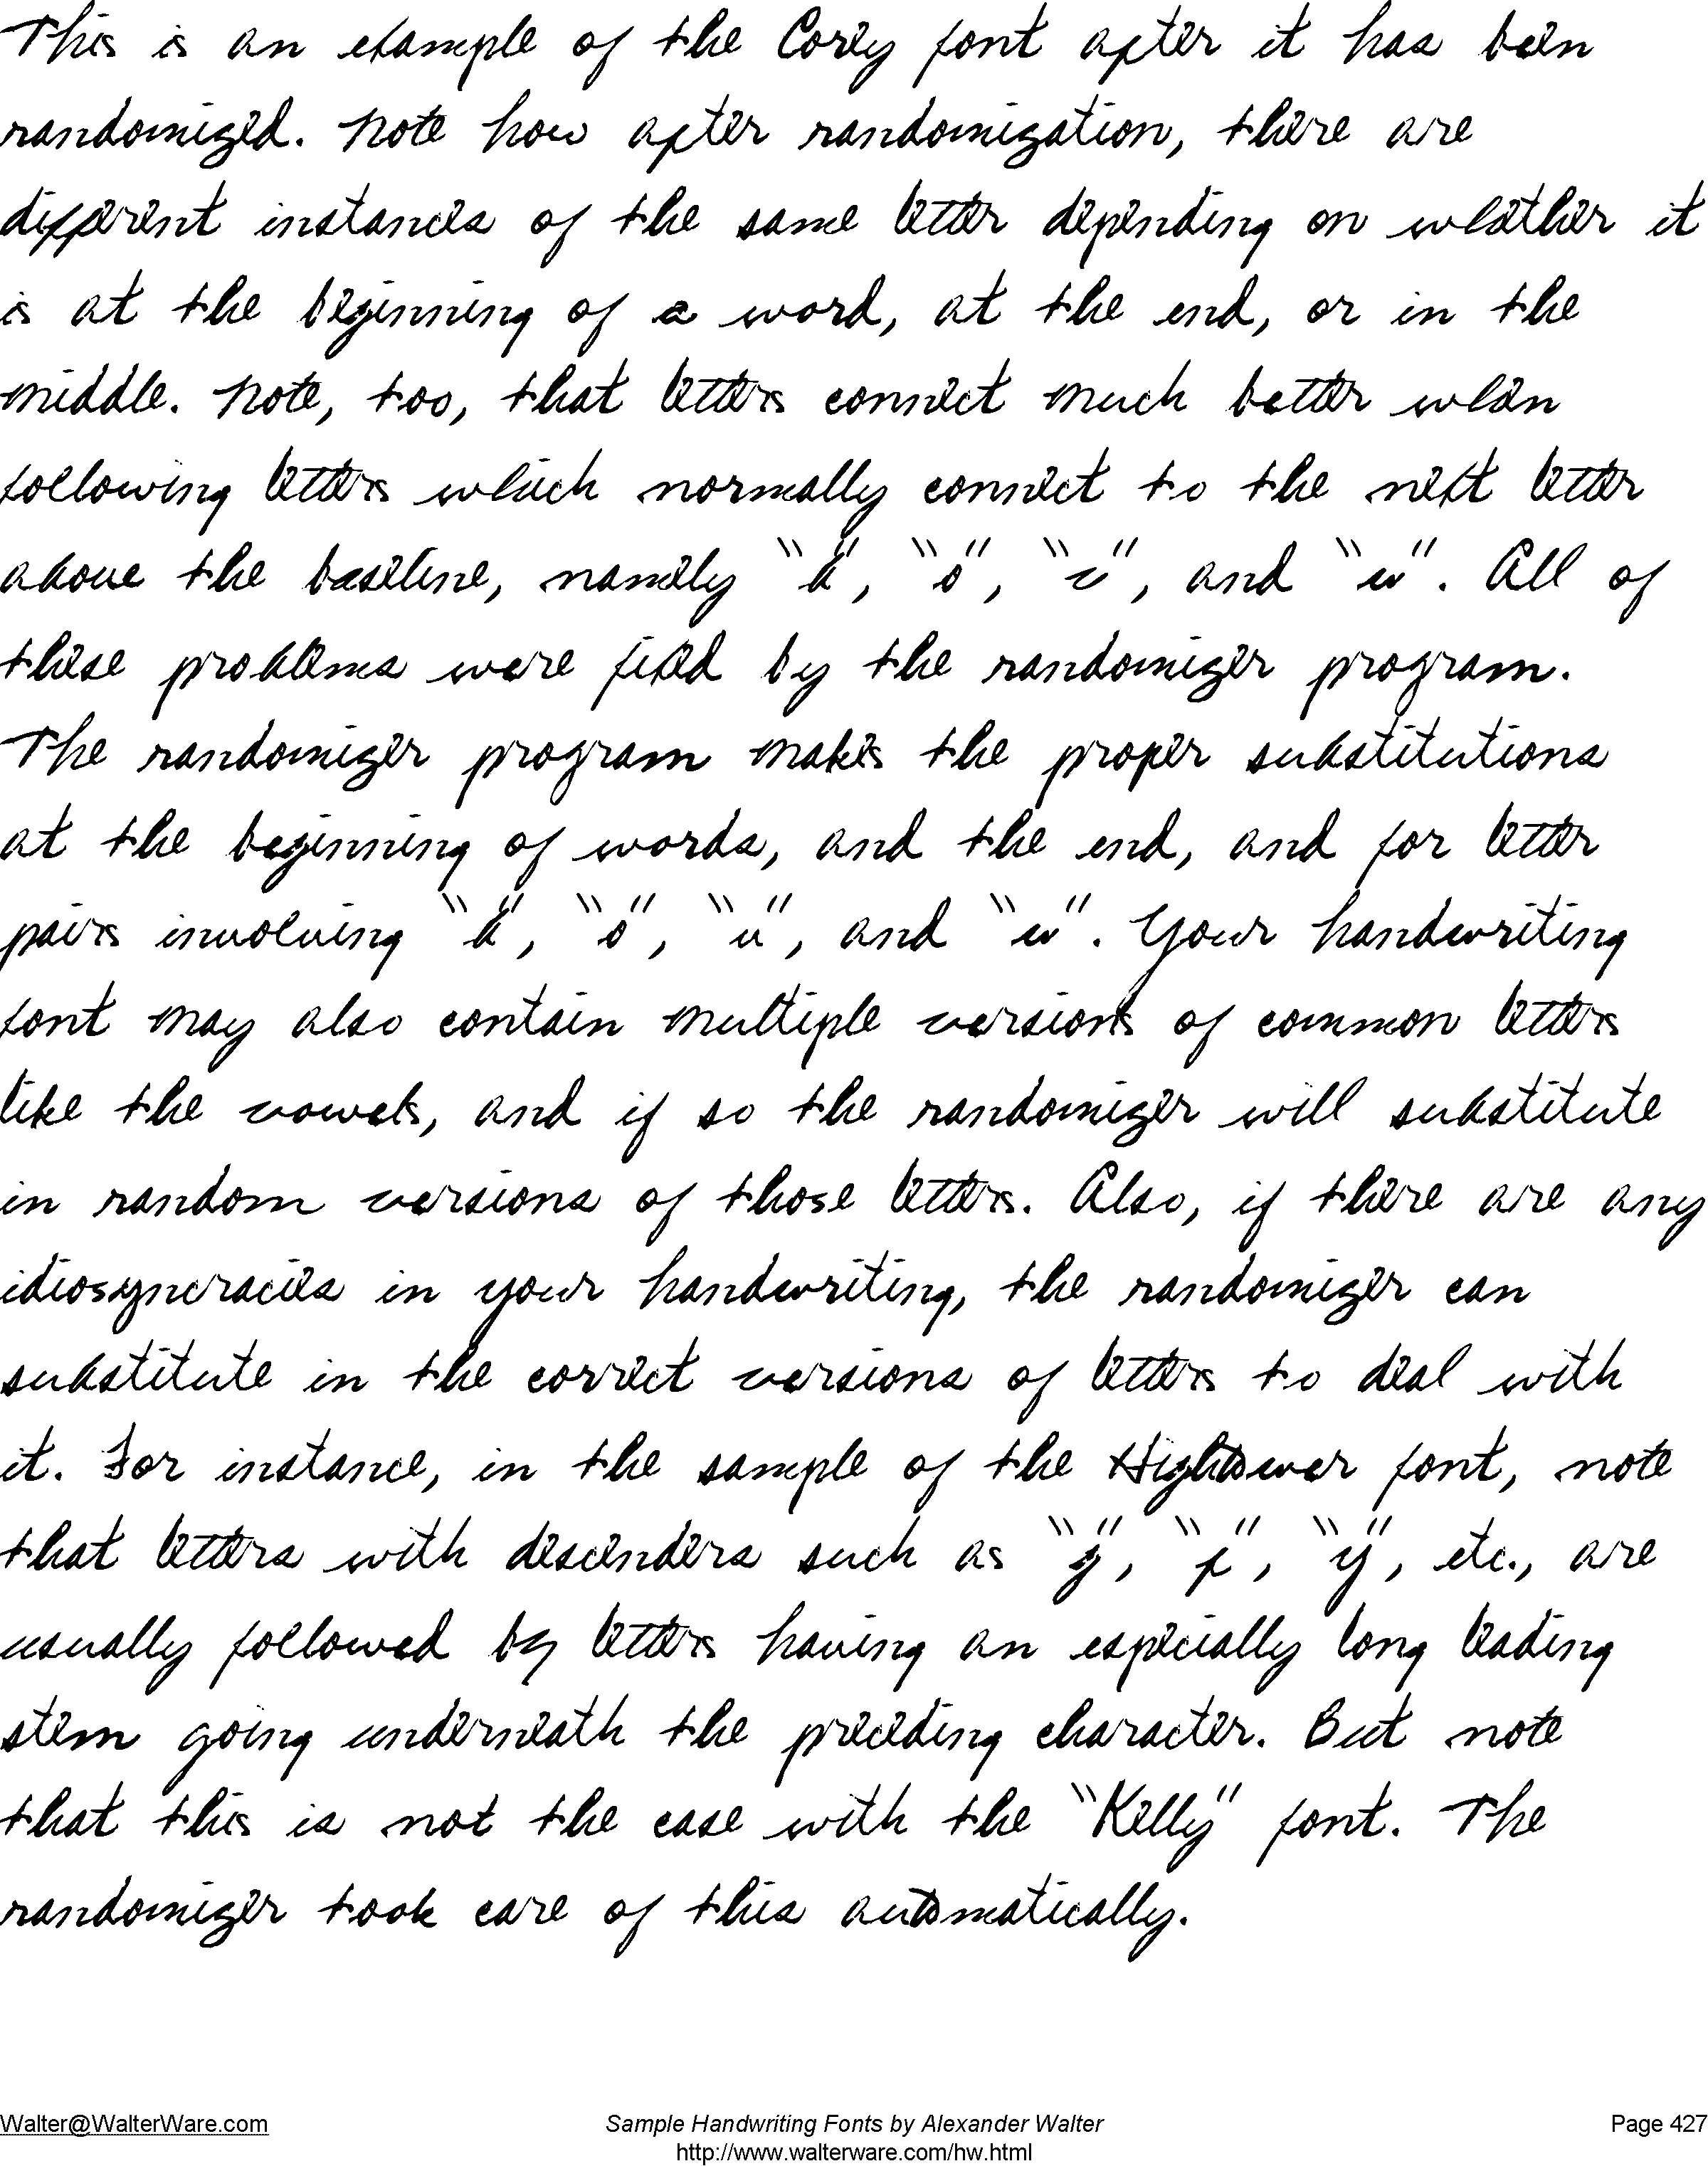 This is an example of the Corey font after it has been
randomized. Note how after randomization, there are
different instances of the same letter depending on whether it
is at the beginning of a word, at the end, or in the
middle. Note, too, that letters connect much better when
following letters which normally connect to the next letter
above the baseline, namely "b", "o", "v", and "w". All of
these problems were fixed by the randomizer program.
The randomizer program makes the proper substitutions
at the beginning of words, and the end, and for letter
pairs involving "b", "o", "v", and "w". Your handwriting
font may also contain multiple versions of common letters
like the vowels, and if so the randomizer will substitute
in random versions of those letters. Also, if there are any
idiosyncracies in your handwriting, the randomizer can
substitute in the correct versions of letters to deal with
it. For instance, in the sample of the Hightower font, note
that letters with descenders such as "g", "f", "y", etc., are
usually followed by letters having an especially long leading
stem going underneath the preceding character. But note
that this is not the case with the "Kelly" font. The
randomizer took care of this automatically.
Walter@WalterWare.com Sample Handwriting Fonts by Alexander Walter Page 427
http://www.walterware.com/hw.html